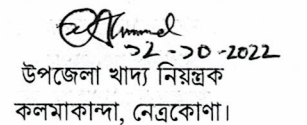 ১2-১0-2022
উপজেলা খাদ্য নিয়ন্ত্রক
কলমাকান্দা, নেত্রকোণা।